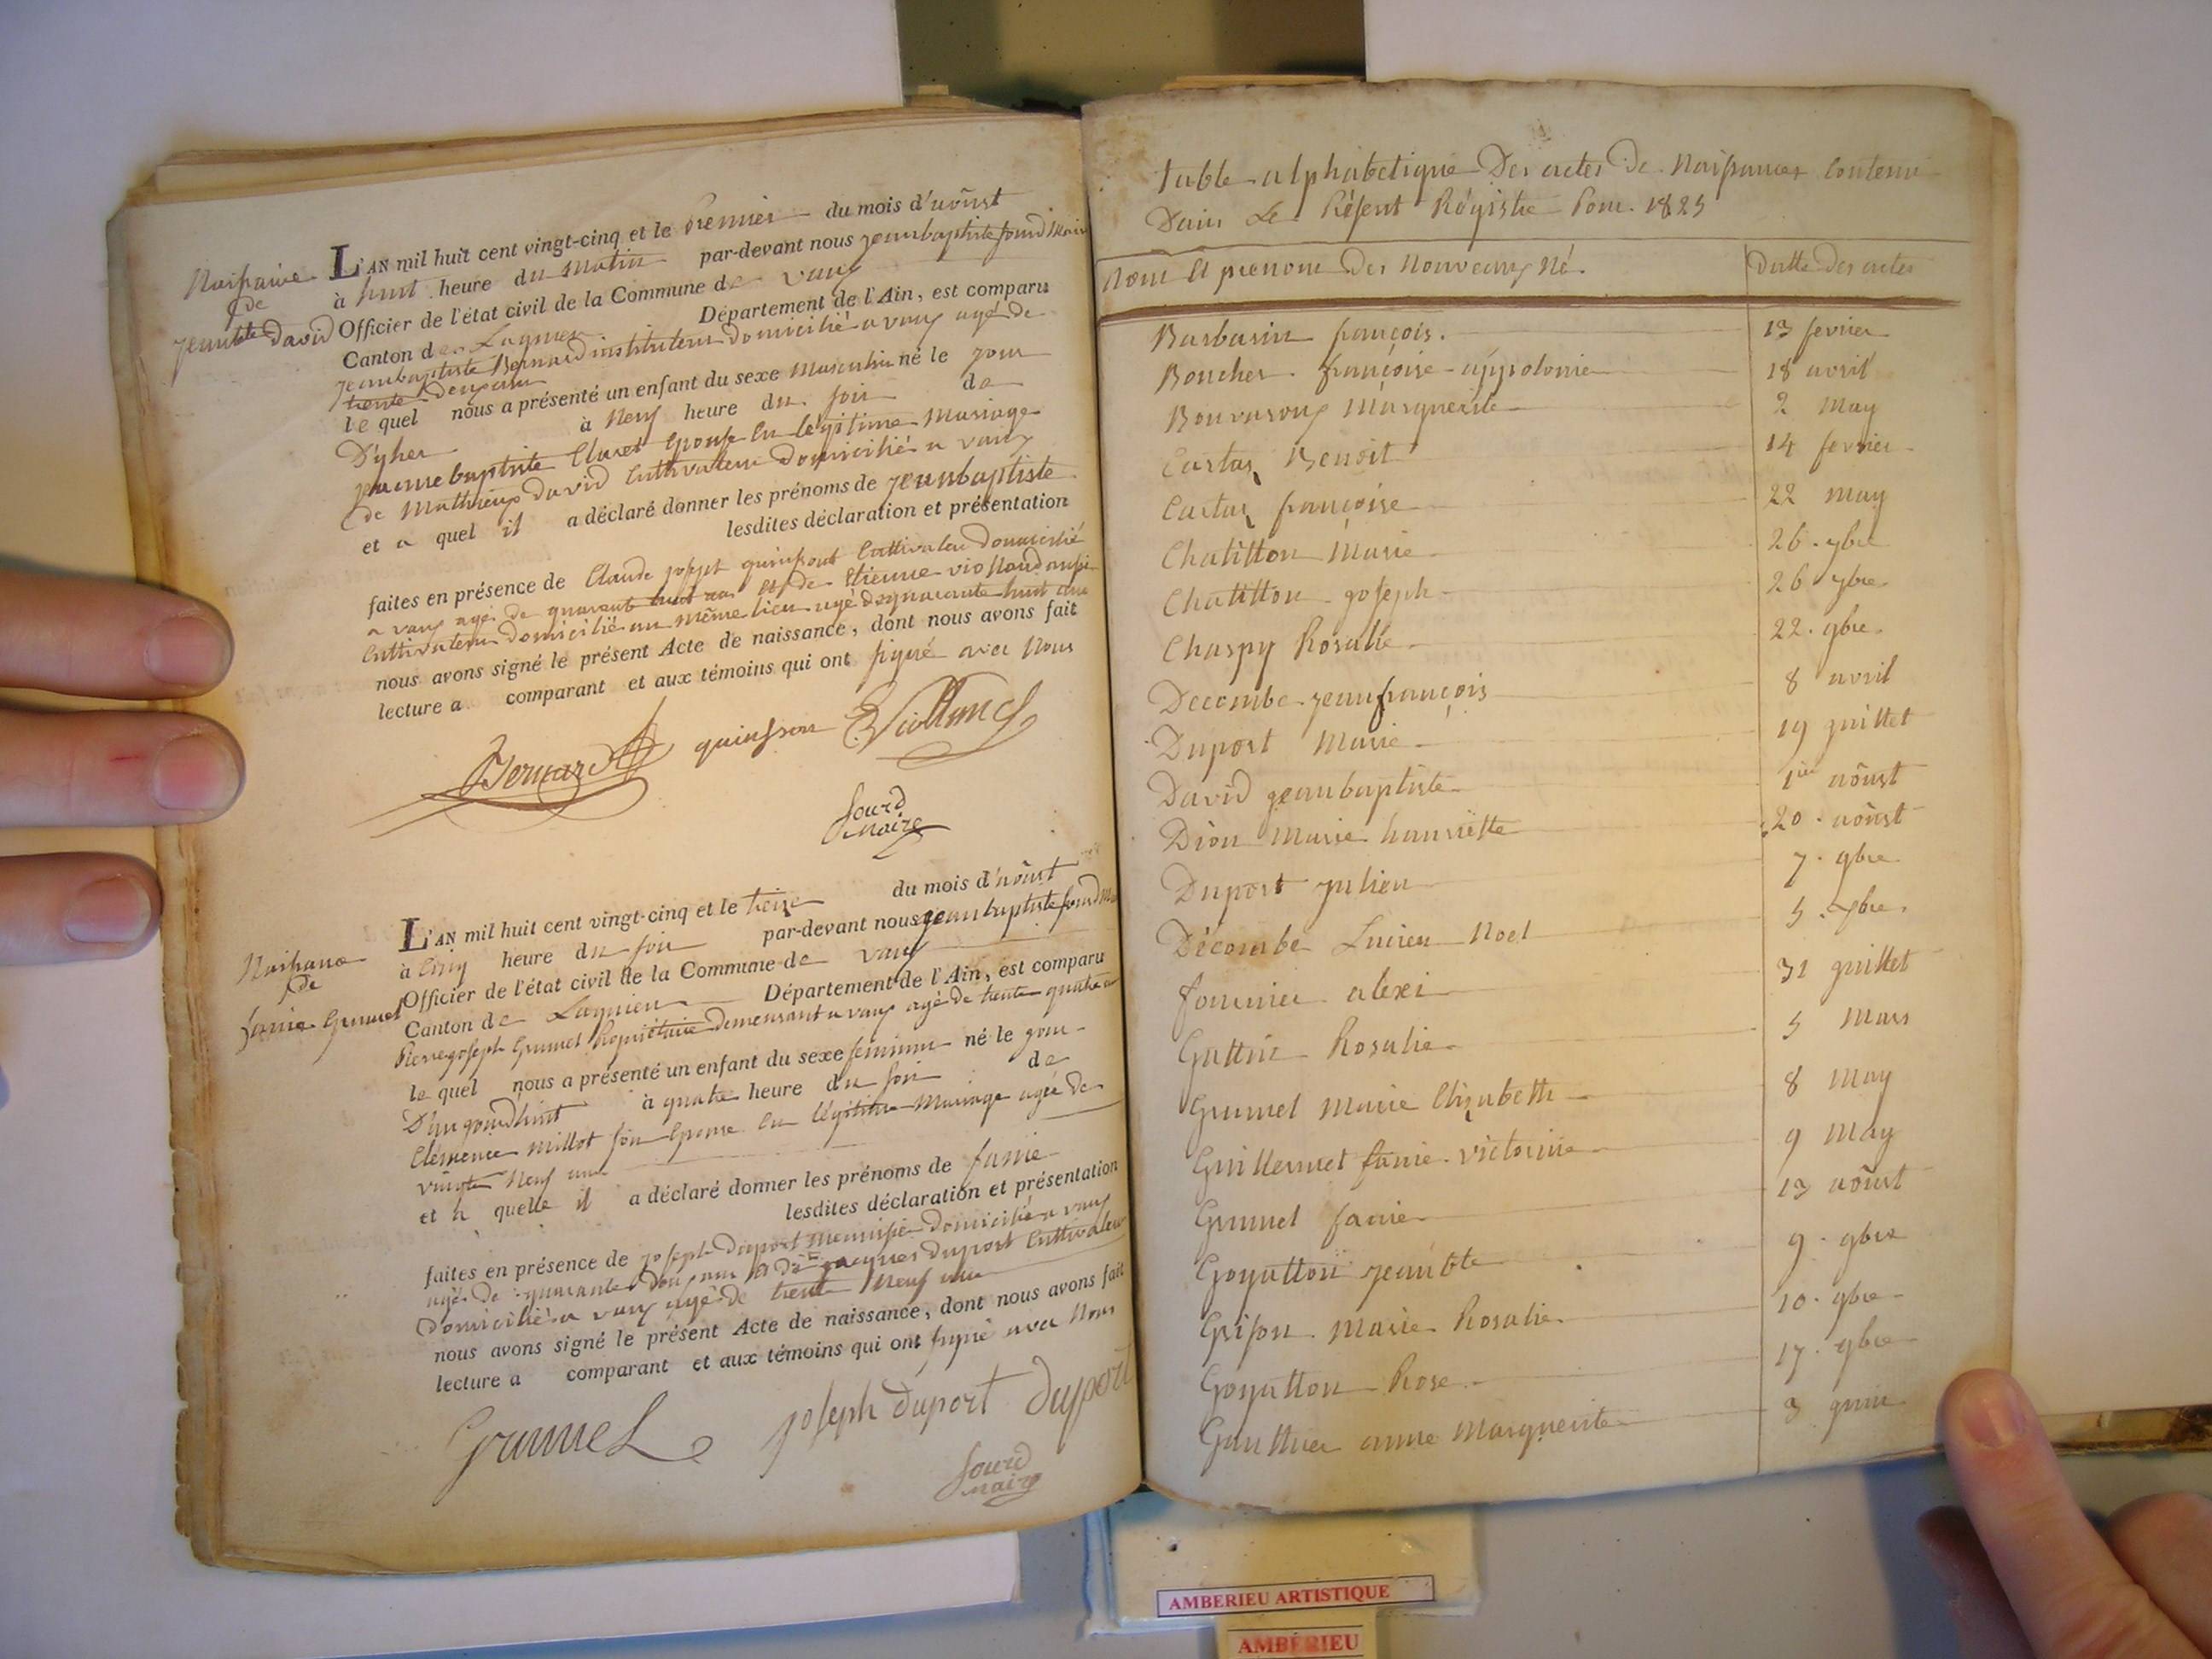 Naissance
de
Jeanbte David
L'AN mil huit cent vingt-cinq et le premier du mois d'aôust
à huit heure du matin par-devant nous jeanbaptiste sourd Maire
Officier de l'état civil de la Commune de vaux
Canton de Lagnieu Département de l'Ain, est comparu
jeanbaptiste Bernard instituteur domicilié a vaux agé de
trente deux ans
le quel nous a présenté un enfant du sexe masculin né le jour
D'yher à neuf heure du soir de
jeannebaptiste Claret Epouse En légitime Mariage
de Mathieux David Cultivateur domicilié a vaux
et a quel il a déclaré donner les prénoms de jeanbaptiste
lesdites déclaration et présentation
faites en présence de Claude joseph quinsont Cultivateur domicilié
a vaux agé de quarente huit ans Et de Etienne violland aussi
Cultivateur domicilié au même lieu agé de quarante huit ans
nous avons signé le présent Acte de naissance, dont nous avons fait
lecture a comparant et aux témoins qui ont signé avec Nous
Bernard quinsson Violland
Sourd
maire
Naissance
de
fanie Grumel
L'AN mil huit cent vingt-cinq et le treize du mois d'aôust
à Cinq heure du soir par-devant nous jean baptiste sourd
Officier de l'état civil de la Commune de vaux
Canton de Lagnieu Département de l'Ain, est comparu
Pierre joseph Grumel Propriétaire demeurant a vaux agé de trente quatre
le quel nous a présenté un enfant du sexe feminin né le jour
D'aujourdhuit à quatre heure du soir de
Clémence Millot son Epouse En légitime Mariage agée de
vingte Neuf ans
et a quelle il a déclaré donner les prénoms de fanie
lesdites déclaration et présentation
faites en présence de joseph Duport Menuisier Domicilié a vaux
agé de quarante Doux ans et de jacques Duport Cultivateur
Domicilié a vaux agé de trente Neuf ans
nous avons signé le présent Acte de naissance, dont nous avons fait
lecture a comparant et aux témoins qui ont signé avec Nous
Grumel joseph duport duport
Sourd
maire
table alphabetique Des actes de Naissances Contenu
Dans Le Présent Régistre Pour 1825
Nom Et prenom Des Nouveaux Né. Datte des actes
Barbarin françois. 13 fevrier
Boucher françoise appolonie 18 avril
Bouvaroux Marguerite 2 May
Cartax Benoit 14 fevrier
Cartax françoise 22 may
Chatillon Marie 26 xbre
Chatillon joseph 26 xbre
Charpy Rosalie 22 9bre
Decombe jeanfrançois 8 avril
Duport Marie 19 juillet
David jeanbaptiste 1ier aôust
Dion Marie hanriette 20 aôust
Duport julien 7 9bre
Décombe Lucien Noel 5 xbre
fournier alexi 31 juillet
Guttin Rosalie 5 Mars
Grumel Marie Elizabeth 8 May
Guillermet fanie victorine 9 May
Grumel fanie 13 aôust
Goyatton jeanbte 9 9bre
Grison Marie Rosalie 10 9bre
Goyatton Rose 17 9bre
Gauthier anne Marguerite 3 juin
AMBERIEU ARTISTIQUE
AMBÉRIEU